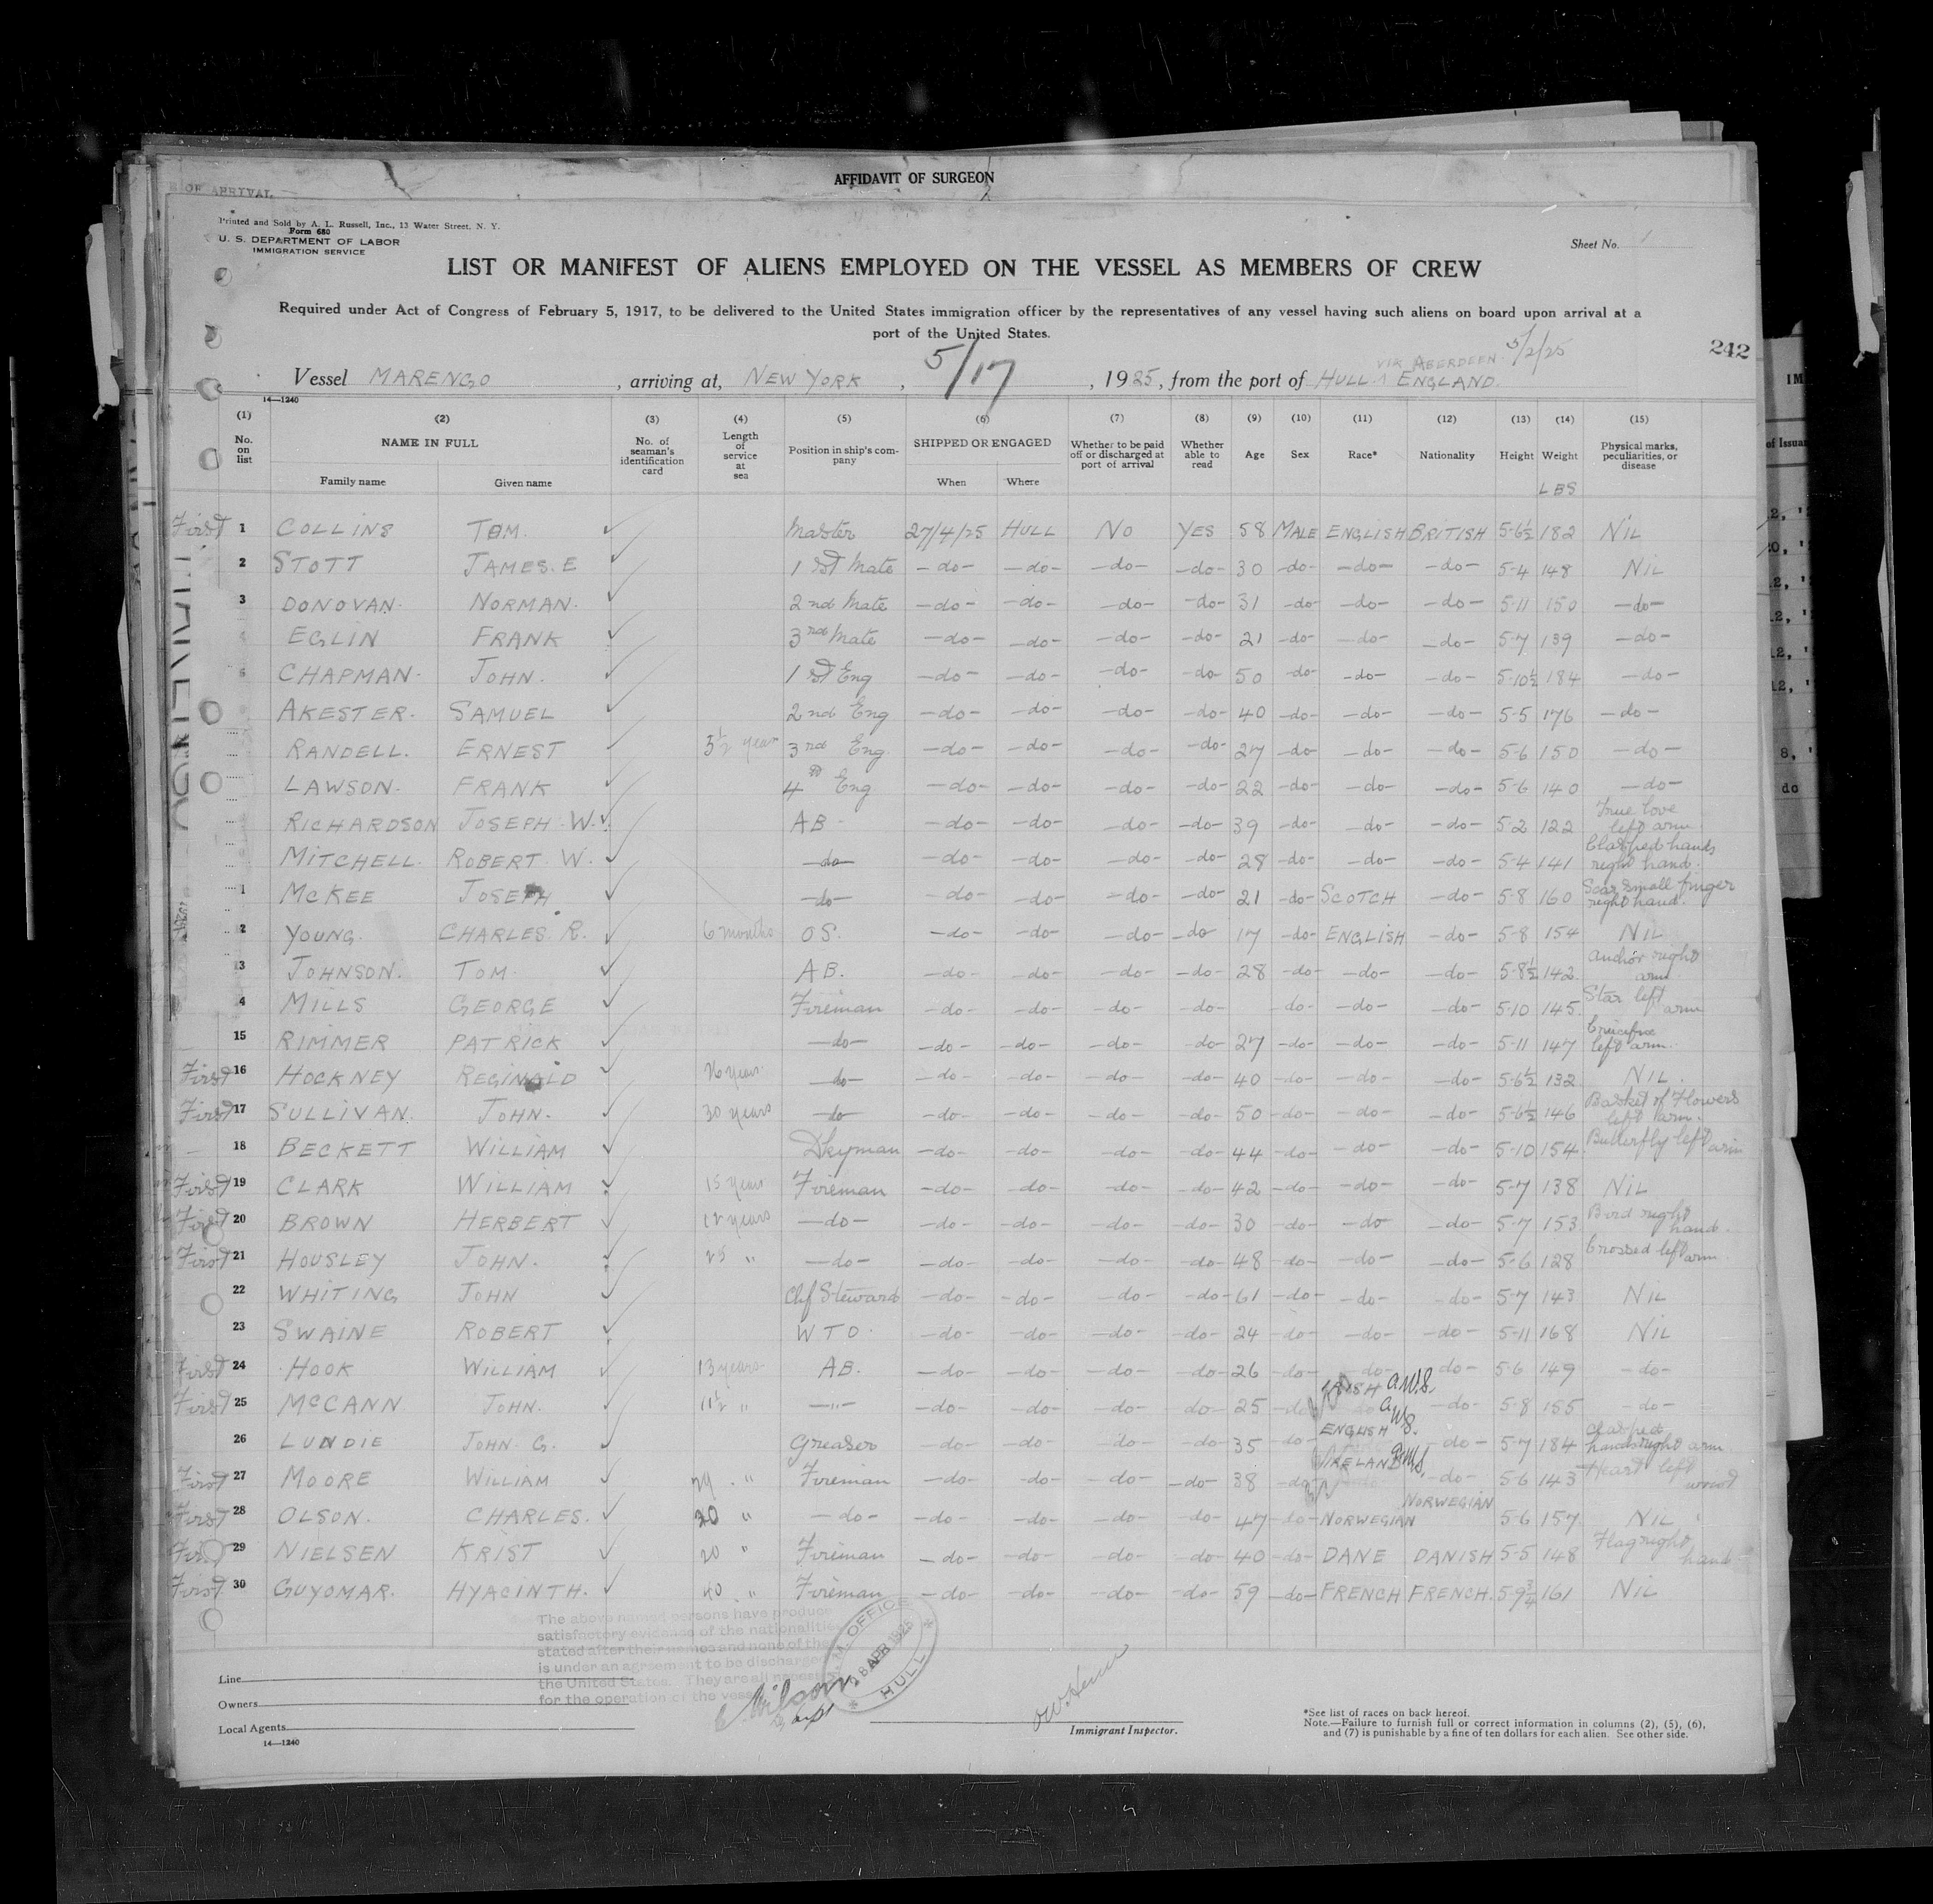 E OF ARRIVAL
AFFIDAVIT OF SURGEON
Printed and Sold by A. L. Russell, Inc., 13 Water Street, N. Y.
Form 680
U. S. DEPARTMENT OF LABOR
IMMIGRATION SERVICE
Sheet No. 1
LIST OR MANIFEST OF ALIENS EMPLOYED ON THE VESSEL AS MEMBERS OF CREW
Required under Act of Congress of February 5, 1917, to be delivered to the United States immigration officer by the representatives of any vessel having such aliens on board upon arrival at a
port of the United States.
VIA ABERDEEN 5/2/25
242
Vessel MARENGO, arriving at, NEW YORK, 5/17, 1925, from the port of HULL ENGLAND.
14—1240
(1) (2) (3) (4) (5) (6) (7) (8) (9) (10) (11) (12) (13) (14) (15)
No. on list NAME IN FULL No. of seaman's identification card Length of service at sea Position in ship's company SHIPPED OR ENGAGED Whether to be paid off or discharged at port of arrival Whether able to read Age Sex Race* Nationality Height Weight Physical marks, peculiarities, or disease
Family name Given name When Where LBS
First 1 COLLINS TOM. Master 27/4/25 HULL NO YES 58 MALE ENGLISH BRITISH 5-6½ 182 NIL
2 STOTT JAMES. E 1st Mate —do— —do— —do— —do— 30 —do— —do— —do— 5-4 148 NIL
3 DONOVAN. NORMAN. 2nd Mate —do— —do— —do— —do— 31 —do— —do— —do— 5-11 150 —do—
4 EGLIN FRANK 3rd Mate —do— —do— —do— —do— 21 —do— —do— —do— 5-7 139 —do—
5 CHAPMAN. JOHN. 1st Eng —do— —do— —do— —do— 50 —do— —do— —do— 5-10½ 184 —do—
AKESTER. SAMUEL 2nd Eng —do— —do— —do— —do— 40 —do— —do— —do— 5-5 176 —do—
RANDELL. ERNEST 3½ year 3rd Eng. —do— —do— —do— —do— 27 —do— —do— —do— 5-6 150 —do—
LAWSON. FRANK 4th Eng —do— —do— —do— —do— 22 —do— —do— —do— 5-6 140 —do—
RICHARDSON JOSEPH. W. AB —do— —do— —do— —do— 39 —do— —do— —do— 5-2 122 True love left arm
MITCHELL. ROBERT. W. —do— —do— —do— —do— —do— 28 —do— —do— —do— 5-4 141 Clasped hands right hand.
1 MCKEE JOSEPH —do— —do— —do— —do— —do— 21 —do— SCOTCH —do— 5-8 160 Scar small finger right hand.
2 YOUNG. CHARLES. R. 6 months OS. —do— —do— —do— —do 17 —do— ENGLISH —do— 5-8 154 NIL
13 JOHNSON. TOM. AB. —do— —do— —do— —do— 28 —do— —do— —do— 5-8½ 142 anchor right arm
4 MILLS GEORGE Fireman —do— —do— —do— —do— —do— —do— 5-10 145 Star left arm
15 RIMMER PATRICK —do— —do— —do— —do— —do— 27 —do— —do— —do— 5-11 147 Crucifix left arm.
First 16 HOCKNEY REGINALD 26 year —do— —do— —do— —do— —do— 40 —do— —do— —do— 5-6½ 132 NIL.
First 17 SULLIVAN. JOHN. 30 years —do —do— —do— —do— —do— 50 —do— —do— —do— 5-6½ 146 Basket of Flowers left arm.
18 BECKETT WILLIAM Dkyman —do— —do— —do— —do— 44 —do— —do— —do— 5-10 154 Butterfly left arm
First 19 CLARK WILLIAM 15 years Fireman —do— —do— —do— —do— 42 —do— —do— —do— 5-7 138 NIL
First 20 BROWN HERBERT 12 years —do— —do— —do— —do— —do— 30 —do— —do —do— 5-7 153 Bird right hand.
First 21 HOUSLEY JOHN. 25 " —do— —do— —do— —do— —do— 48 —do— —do— —do— 5-6 128 Crossed left arm
22 WHITING JOHN Chf Steward —do— —do— —do— —do— 61 —do— —do— —do— 5-7 143 NIL
23 SWAINE ROBERT WTO. —do— —do— —do— —do— 24 —do— —do— —do— 5-11 168 NIL
First 24 HOOK WILLIAM 13 years AB. —do— —do— —do— —do— 26 —do— —do— do— 5-6 149 —do—
First 25 MCCANN JOHN. 11½ " —"— —do— —do— —do— do— 25 —do IRISH A.W.S. —do— 5-8 155 —do—
26 LUNDIE JOHN. G. Greaser —do— —do— —do— —do— 35 —do— ENGLISH —do— 5-7 184 clasped hands right arm
First 27 MOORE WILLIAM 29 " Fireman —do— —do— —do— —do— 38 —do IRELAND —do— 5-6 143 Heart left wrist
First 28 OLSON. CHARLES. 20 " —do— —do— —do— —do— —do— 47 —do— NORWEGIAN NORWEGIAN 5-6 157 NIL
First 29 NIELSEN KRIST 20 " Fireman —do— —do— —do— —do— 40 —do— DANE DANISH 5-5 148 Flag right hand
First 30 GUYOMAR. HYACINTH. 40 " Fireman —do— —do— —do— —do— 59 —do— FRENCH FRENCH. 5-9¾ 161 NIL
The above named persons have produce
satisfactory evidence of the nationalitie
stated after their names and none of the
is under an agreement to be discharged
the United States. They are all necess
for the operation of the vess
M. M. OFFICE 28 APR 1925 HULL
Line
Owners
Local Agents
14—1240
Immigrant Inspector.
*See list of races on back hereof.
Note.—Failure to furnish full or correct information in columns (2), (5), (6),
and (7) is punishable by a fine of ten dollars for each alien. See other side.